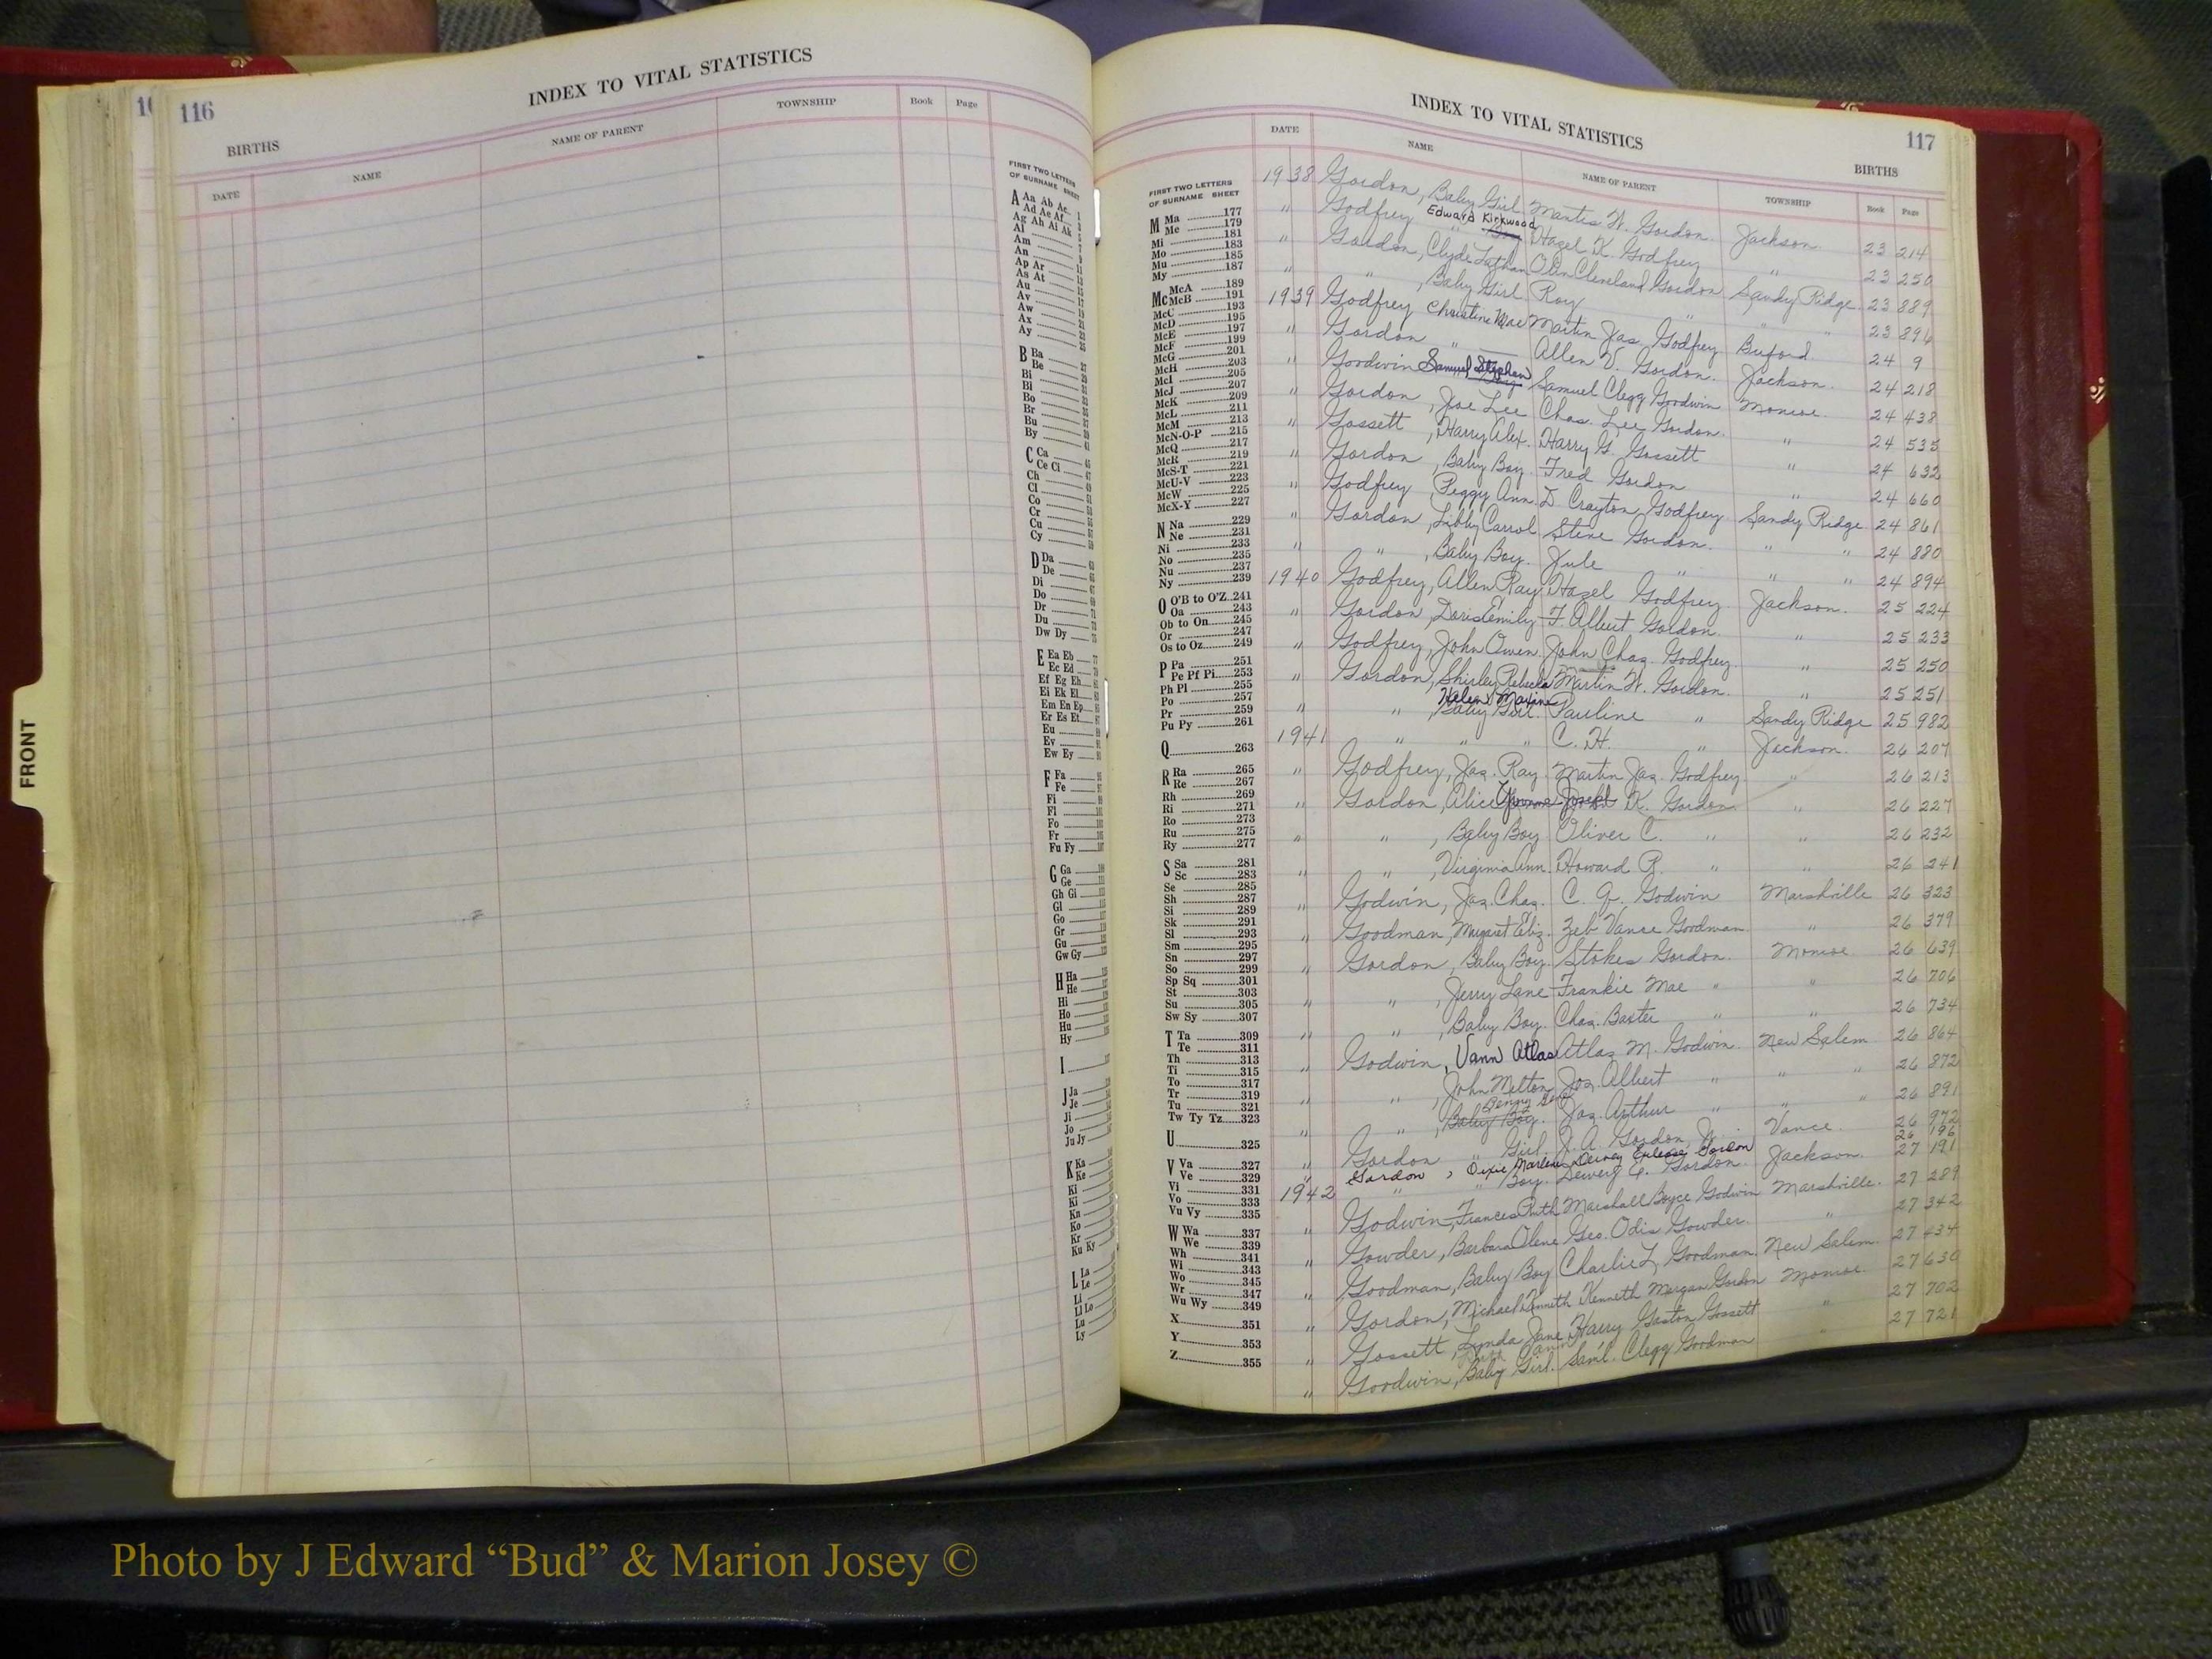 116
INDEX TO VITAL STATISTICS
BIRTHS
DATE NAME NAME OF PARENT TOWNSHIP Book Page
FIRST TWO LETTERS
OF SURNAME SHEET
A Aa Ab Ac
Ad Ae Af
Ag Ah Ai Ak
Al
Am
An
Ap Ar
As At
Au
Av
Aw
Ax
Ay
B Ba
Be
Bi
Bl
Bo
Br
Bu
By
C Ca
Ce Ci
Ch
Cl
Co
Cr
Cu
Cy
D Da
De
Di
Do
Dr
Du
Dw Dy
E Ea Eb
Ec Ed
Ef Eg Eh
Ei Ek El
Em En Ep
Er Es Et
Eu
Ev
Ew Ey
F Fa
Fe
Fi
Fl
Fo
Fr
Fu Fy
G Ga
Ge
Gh Gi
Gl
Go
Gr
Gu
Gw Gy
H Ha
He
Hi
Ho
Hu
Hy
I
J Ja
Je
Ji
Jo
Ju Jy
K Ka
Ke
Ki
Kl
Kn
Ko
Kr
Ku Ky
L La
Le
Li
Ll Lo
Lu
Ly
FRONT
INDEX TO VITAL STATISTICS
117
BIRTHS
DATE NAME NAME OF PARENT TOWNSHIP Book Page
FIRST TWO LETTERS
OF SURNAME SHEET
M Ma 177
Me 179
Mi 181
Mo 183
Mu 185
My 187
Mc McA 189
McB 191
McC 193
McD 195
McE 197
McF 199
McG 201
McH 203
McI 205
McJ 207
McK 209
McL 211
McM 213
McN-O-P 215
McQ 217
McR 219
McS-T 221
McU-V 223
McW 225
McX-Y 227
N Na 229
Ne 231
Ni 233
No 235
Nu 237
Ny 239
O O'B to O'Z 241
Oa 243
Ob to On 245
Or 247
Os to Oz 249
P Pa 251
Pe Pf Pi 253
Ph Pl 255
Po 257
Pr 259
Pu Py 261
Q 263
R Ra 265
Re 267
Rh 269
Ri 271
Ro 273
Ru 275
Ry 277
S Sa 281
Sc 283
Se 285
Sh 287
Si 289
Sk 291
Sl 293
Sm 295
Sn 297
So 299
Sp Sq 301
St 303
Su 305
Sw Sy 307
T Ta 309
Te 311
Th 313
Ti 315
To 317
Tr 319
Tu 321
Tw Ty Tz 323
U 325
V Va 327
Ve 329
Vi 331
Vo 333
Vu Vy 335
W Wa 337
We 339
Wh 341
Wi 343
Wo 345
Wr 347
Wu Wy 349
X 351
Y 353
Z 355
1938 Gordon, Baby Girl W. Gordon. Jackson. 23 214
" Godfrey Edward Kirkwood Hazel K. Godfrey " 23 250
" Gordon, Clyde Olin Cleveland Gordon Sandy Ridge 23 889
" " , Baby Girl Roy " " " 23 896
1939 Godfrey Christine Mae Martin Jas. Godfrey Buford 24 9
" Gordon " Allen V. Gordon. Jackson. 24 218
" Goodwin Samuel Stephen Samuel Clegg Goodwin Monroe. 24 438
" Gordon, Joe Lee Chas. Lee Gordon. " 24 535
" Gossett, Harry Alex. Harry G. Gossett " 24 632
" Gordon, Baby Boy. Fred Gordon " 24 660
" Godfrey, Peggy Ann. D. Crayton Godfrey Sandy Ridge 24 861
" Gordon, Libby Carrol Steve Gordon. " " 24 880
" " , Baby Boy. Jule " " " 24 894
1940 Godfrey, Allen Ray Hazel Godfrey. Jackson. 25 224
" Gordon, Doris Emily F. Albert Gordon. " 25 233
" Godfrey, John Owen. John Chas. Godfrey. " 25 250
" Gordon, Shirley Rebecka Martin W. Gordon. " 25 251
" " , Helen Maxine Baby Girl. Pauline " Sandy Ridge 25 982
1941 " " " C. H. " Jackson. 26 207
" Godfrey, Jas. Ray. Martin Jas. Godfrey " 26 213
" Gordon, Alice Yvonne Joseph K. Gordon " 26 227
" " , Baby Boy Oliver C. " " 26 232
" " , Virginia Ann. Howard R. " " 26 241
" Godwin, Jas. Chas. C. Godwin Marshville 26 323
" Goodman, Margaret Eliz. Zeb Vance Goodman " 26 379
" Gordon, Baby Boy. Stokes Gordon. Monroe 26 639
" " , Jerry Lane Frankie Mae " " 26 706
" " , Baby Boy. Chas. Baxter " " 26 734
" Godwin, Vann Atlas Atlas M. Godwin. New Salem 26 864
" " , John Melton Jas. Albert " " " 26 872
" " , Baby Boy. Jas. Arthur " " " 26 891
" Gordon " Girl. J. A. Gordon, Jr. Vance. 26 972
" Gordon, Dixie Marlene Gordon 26 196
1942 " " Boy. Gordon. Jackson. 27 191
" Godwin, Frances Ruth Marshall Boyce Godwin Marshville. 27 289
" Gowder, Barbara Olene Geo. Odis Gowder. " 27 342
" Goodman, Baby Boy Charlie L. Goodman New Salem. 27 434
" Gordon, Michael Kenneth Kenneth Morgan Gordon Monroe. 27 630
" Gossett, Lynda Jane Harry Gaston Gossett " 27 702
" Goodwin, Baby Girl. Saml. Clegg Goodman " 27 721
Photo by J Edward “Bud” & Marion Josey ©